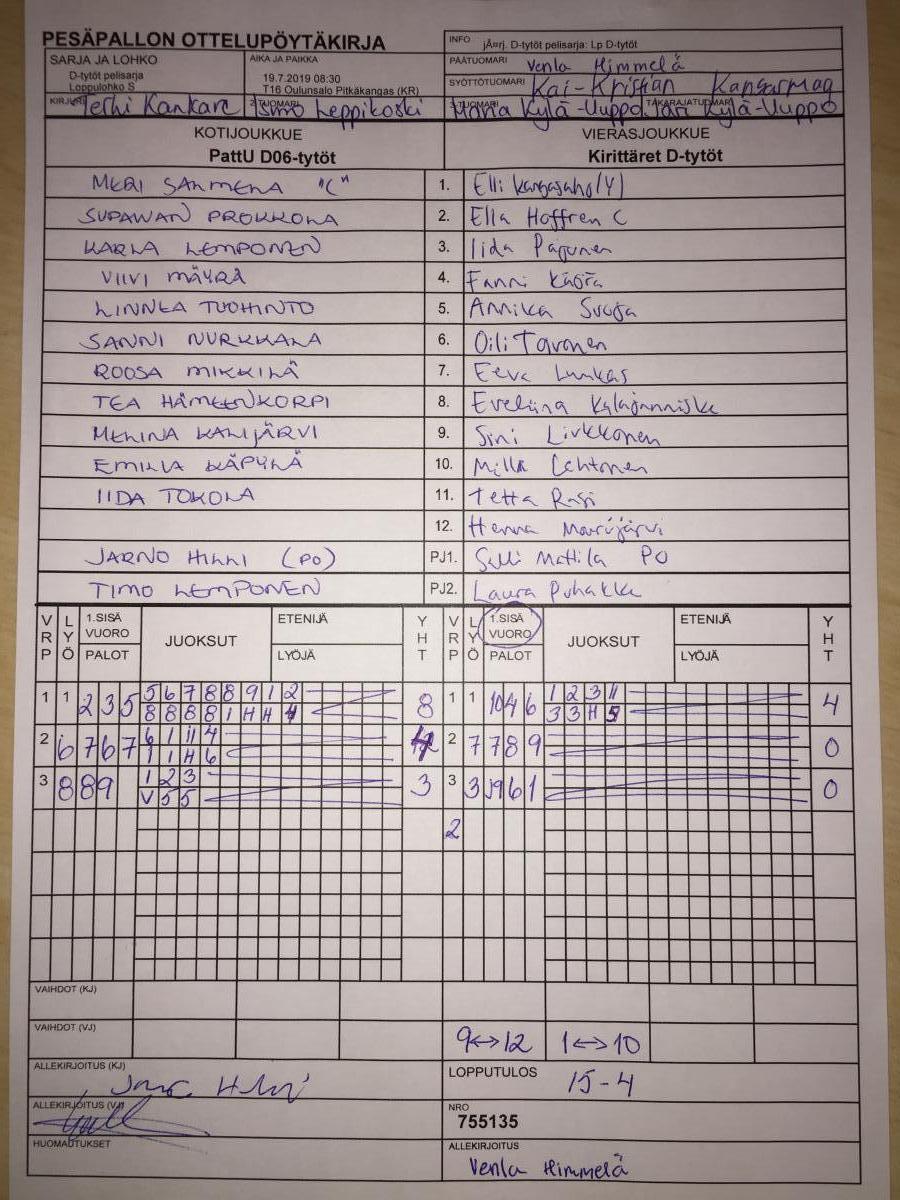 PESÄPALLON OTTELUPÖYTÄKIRJA
INFO jÃ¤rj. D-tytöt pelisarja: Lp D-tytöt
SARJA JA LOHKO
D-tytöt pelisarja
Loppulohko S
AIKA JA PAIKKA
19.7.2019 08:30
T16 Oulunsalo Pitkäkangas (KR)
PÄÄTUOMARI Venla Himmelä
SYÖTTÖTUOMARI Kai-Kristian Kangasmaa
KIRJURI Terhi Kankare
2-TUOMARI Ismo Leppikoski
3-TUOMARI Maria Kylä-Uuppo
TAKARAJATUOMARI Jari Kylä-Uuppo
KOTIJOUKKUE
PattU D06-tytöt
VIERASJOUKKUE
Kirittäret D-tytöt
MERI SAHMELA "C" 1. Elli Kangasaho (Y)
SUPAWAN PROKKOLA 2. Ella Hoffren C
KARLA LEMPONEN 3. Iida Pajunen
VIIVI MÄYRÄ 4. Fanni
LINNEA TUOHINTO 5. Annika Suoja
SANNI NURKKALA 6. Oili Tavonen
ROOSA MIKKILÄ 7. Eeva Luukas
TEA HÄMEENKORPI 8. Eveliina Kyläjanniska
MELINA KALIJÄRVI 9. Sini Liukkonen
EMILIA KÄPYLÄ 10. Milla Lehtonen
IIDA TOKOLA 11. Tetta Rasi
12. Henna
JARNO HILLI (PO) PJ1. Salli Mattila PO
TIMO LEMPONEN PJ2. Laura Puhakka
VRP LYÖ 1.SISÄ VUORO PALOT JUOKSUT ETENIJÄ LYÖJÄ YHT VRP LYÖ 1.SISÄ VUORO PALOT JUOKSUT ETENIJÄ LYÖJÄ YHT
1 1 2 3 5 5 6 7 8 8 9 1 2 8 1 1 10 4 6 1 2 3 11 4
8 8 8 8 1 H H 4 3 3 H 5
2 6 7 6 7 6 1 1 4 4 2 7 7 8 9 0
1 1 H 6
3 8 8 9 1 2 3 3 3 3 9 6 1 0
V 5 5
2
VAIHDOT (KJ)
VAIHDOT (VJ) 9↔12 1↔10
ALLEKIRJOITUS (KJ)
LOPPUTULOS 15-4
ALLEKIRJOITUS (VJ)
NRO
755135
HUOMAUTUKSET
ALLEKIRJOITUS
Venla Himmelä